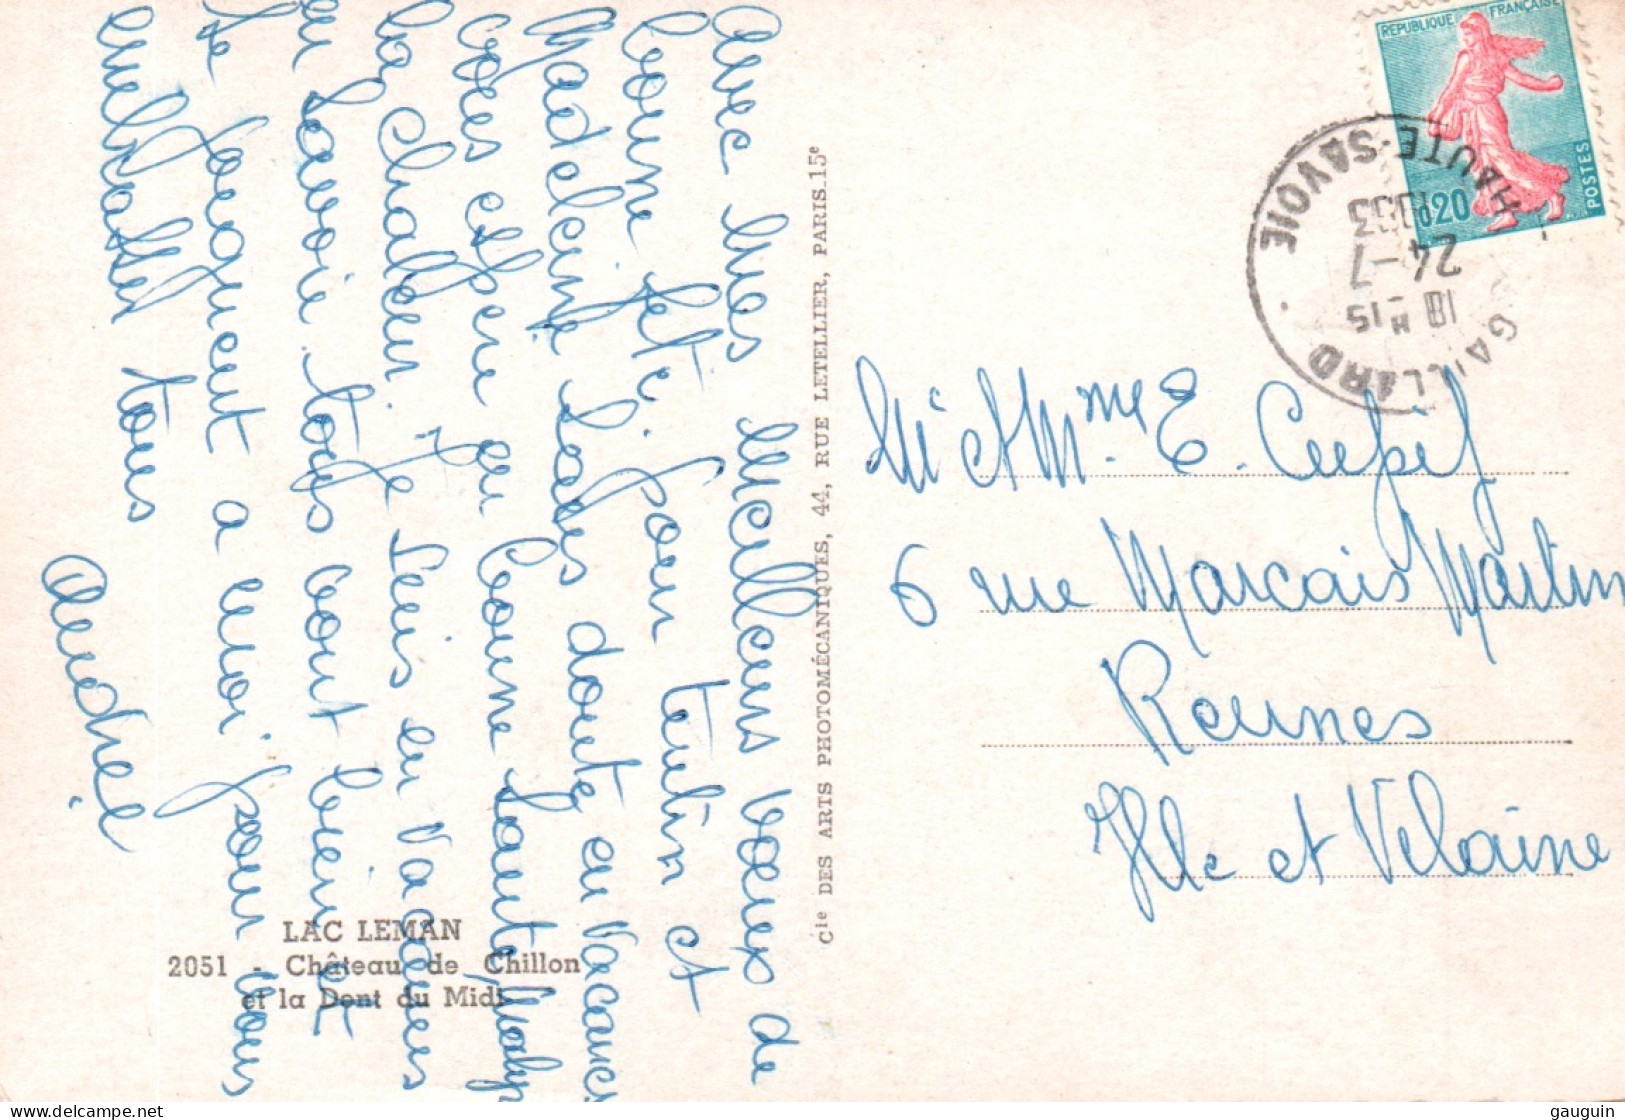 Avec mes meilleurs vœux de
bonne fete. pour tentin et
Madeleine. sans doute en vacances
esPere
bonne santé malgré
la chaleur. Je suis en Vacances
en Savoie. tous vont bien et
se joignent a moi pour vous
embrasser tous
Andrée
LAC LEMAN
2051 - Château de Chillon
et la Dent du Midi
Cie DES ARTS PHOTOMÉCANIQUES, 44, RUE LETELLIER, PARIS.15e
REPUBLIQUE FRANÇAISE
0,20
POSTES
GAILLARD
18 H 15
24 - 7
1963
HAUTE-SAVOIE
Mr & Mme E. Cupif
6 rue Marcais Martin
Rennes
Ille et Vilaine
delcampe.net
gauguin